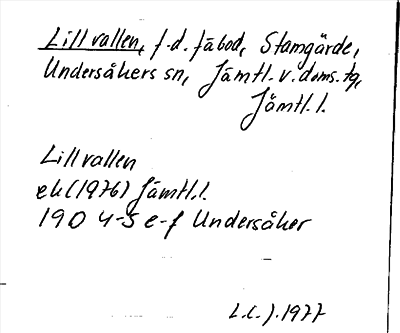 Lillvallen, f.d. fäbod, Stamgärde,
Undersåkers sn, Jämtl. v. doms. tg,
Jämtl. l.
Lillvallen
ek (1976) Jämtl. l.
19D 4-5 e-f Undersåker
L.C.J. 1977